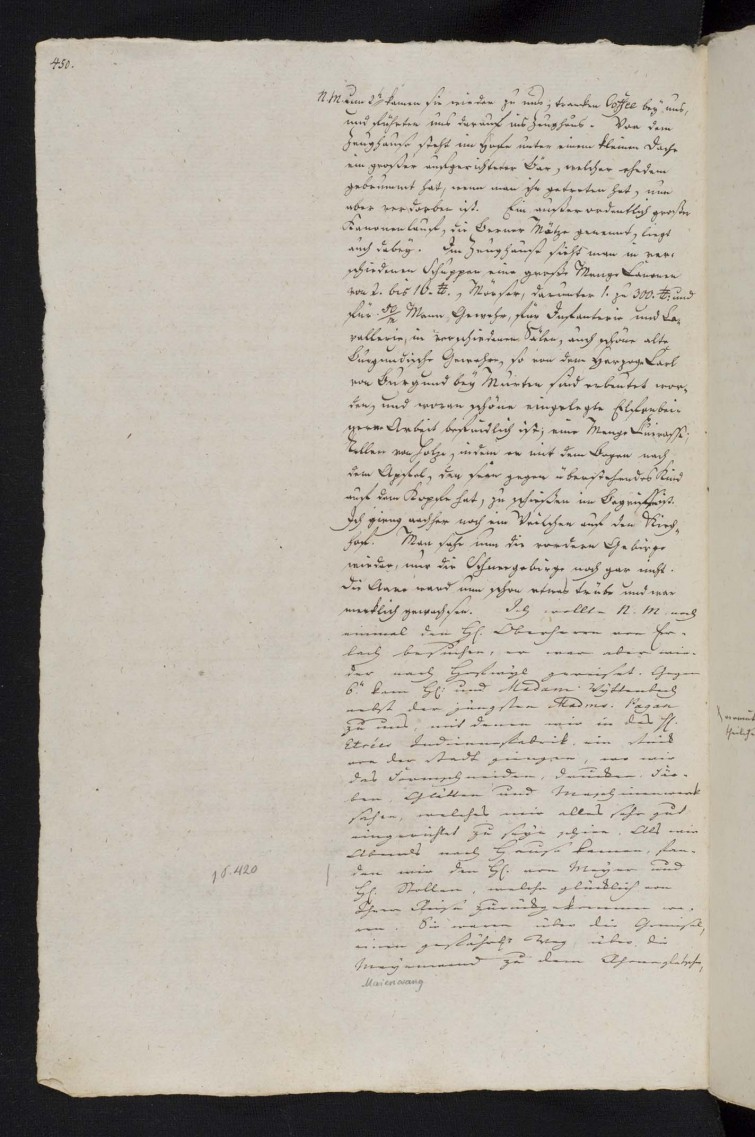 450.
N. M. um 2 kamen sie wieder zu uns, tranken Coffee bey uns,
und führten uns darauf ins Zeughaus. Vor dem
Zeughause steht im Hofe unter einem kleinen Dache
ein großer aufgerichteter Bär, welcher ehedem
gebrummt hat, wenn man ihn getreten hat, nun
aber verdorben ist. Ein außerordentlich großer
Kanonenlauf, die Berner Mütze genennt, liegt
auch dabey. Im Zeughause sieht man in ver-
schiedenen Schuppen eine große Menge Canonen
von 2. bis 16. ℔., Mörser, darunter 1. zu 300. ℔. und
für Mann Gewehr, für Infanterie und Ca-
vallerie, in verschiedenen Sälen, auch schöne alte
Burgundische Gewehre, so von dem Herzoge Carl
von Burgund bey Murten sind erbeutet wor-
den, und woran schöne eingelegte Elfenbei-
nerne Arbeit befindlich ist; eine Menge Cuirasse;
Tellen von Holze, indem er mit dem Bogen nach
dem Apfel, den sein gegen überstehendes Kind
auf dem Kopfe hat, zu schießen im Begriff ist.
Ich gieng nachher noch ein Weilchen auf den Kirch-
hof. Man sahe nun die vordern Gebürge
wieder, nur die Schneegebürge noch gar nicht.
Die Aare ward nun schon etwas trübe und war
merklich gewachsen. Ich wollte N. M. noch
einmal den H. Oberherrn von Er-
lach besuchen, er war aber wie-
der nach Hindelbank gereiset. Gegen
6 kam H. und Madame Wyttenbach
nebst der jüngsten Madms. Pagan
zu uns, mit denen wir in das H.
Indiennefabrik, ein Stück
von der Stadt giengen, wo wir
das Formschneiden, drucken, Fär-
ben, Glätten und Maschinenwerk
sahen, welches mir alles sehr gut
eingerichtet zu seyn schien. Als wir
Abends nach Hause kamen, fan-
den wir den H. von Meyer und
H. Stollen, welche glücklich von
ihrer Reise zurückgekommen wa-
ren. Sie waren über die Grimsel,
einen gefährl. Weg, über die
Meyenwand zu dem Rhonegletscher,
Maienwang
p. 420